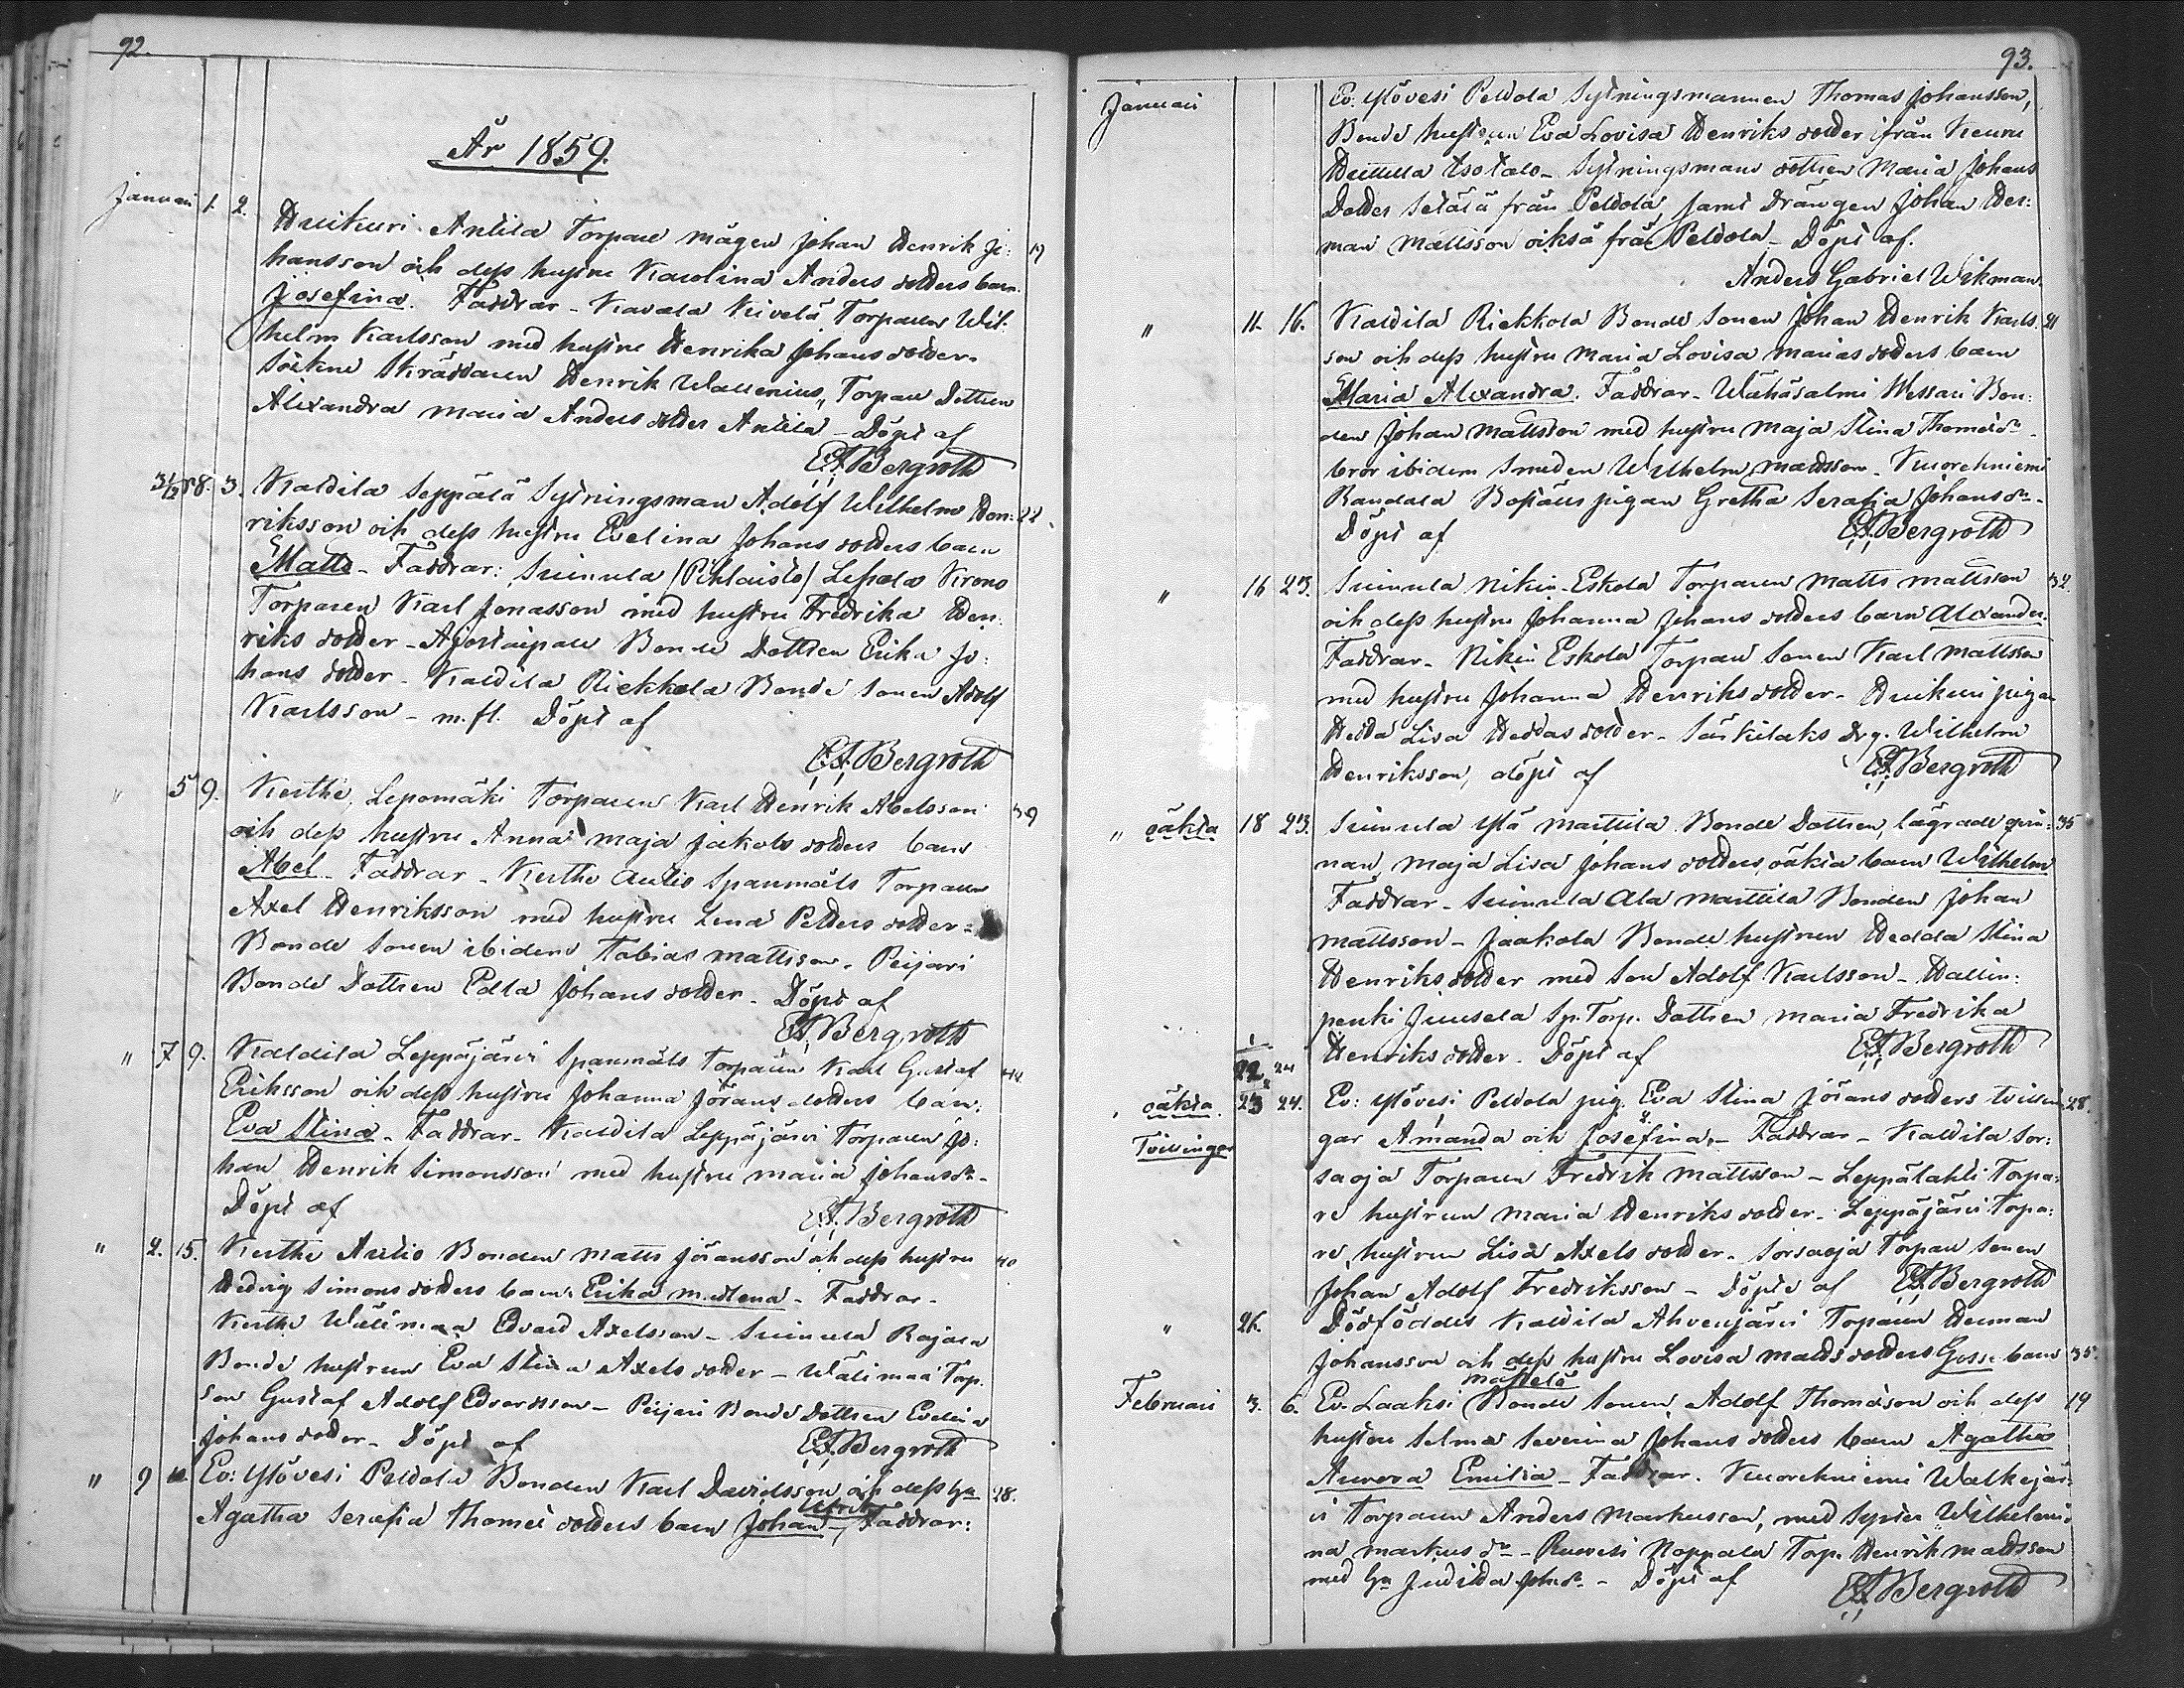 92.
År 1859.
Januari 1. 2. Huikuri Anttila Torpare mågen Johan Henrik Jo: 19
hansson och dess hustru Karolina Anders dotters barn
Josefina. Faddrar - Kavala Kivelä Torparen Wil:
helm Karlsson med hustru Henrika Johans dotter -
Sockne Skräddaren Henrik Wallenius, Torpare Dottren
Alexandra Maria Anders dotter Anttila - Döpt af
E.A. Bergroth
31/12 58. 3. Kaldila Seppälä Sytningsman Adolf Wilhelm Hen: 22.
riksson och dess hustru Evelina Johans dotters barn
Matts - Faddrar: Suinula (Pihlaisto) Lepola Krono
Torparen Karl Jonasson med hustru Fredrika Hen:
riks dotter - Ajostaipale Bonde Dottren Erika Jo:
hans dotter - Kaldila Riekkola Bonde Sonen Adolf
Karlsson - m.fl. Döpt af
E.A. Bergroth
" 5 9. Kerthe, Lepomäki Torparen Karl Henrik Abelsson 39
och dess hustru Anna Maja Jakobs dotters barn
Abel - Faddrar - Kerthe Aulio Spanmåls Torparen
Axel Henriksson med hustru Lena Petters dotter -
Bonde Sonen ibidem Tobias Mattsson - Peijari
Bonde Dottren Edla Johans dotter - Döpt af
E.A. Bergroth
" 7 9. Kaldila Leppäjärvi Spanmåls Torparen Karl Gustaf 44
Eriksson och dess hustru Johanna Jörans dotters barn:
Eva Stina - Faddrar - Kaldila Leppäjärvi Torparen Jo:
han Henrik Simonsson med hustru Maria Johansdr -
Döpt af E.A. Bergroth
" 2. 15. Kerthe Aulio Bonden Matts Jöransson och dess hustru 40
Hedvig Simons dotters barn: Erika Madlena - Faddrar -
Kerthe Wälimaa Edvard Axelsson - Suinula Rajala
Bonde hustrun Eva Stina Axels dotter - Wälimaa Torp.
son Gustaf Adolf Edvardsson - Peijari Bonde Dottren Evelina
Johans dotter - Döpt af E.A. Bergroth
" 9 Ev: Ylövesi Peldola Bonden Karl Davidsson och dess hu 28.
Ulrik
Agatha Serafia Thomæ dotters barn Johan - Faddrar:
93.
Januari Ev: Ylövesi Peldola Sytningsmannen Thomas Johansson,
Bonde hustrun Eva Lovisa Henriks dotter ifrån Keuru
Huttula Isotalo - Sytningsmans dottren Maria Johans
Dotter Setälä från Peldola samt Drängen Johan Her:
man Mattsson också från Peldola - Döpt af.
Anders Gabriel Wikman.
" 11. 16. Kaldila Riekkola Bonde Sonen Johan Henrik Karls 21
son och dess hustru Maria Lovisa Marias dotters barn
Maria Alexandra. Faddrar - Wähäsalmi Wessari Bon:
den Johan Mattsson med hustru Maja Stina Thomædr -
bror ibidem Smeden Wilhelm Mattsson - Kuorehniemi
Randala Boställs pigan Gretha Serafia Johansdr -
Döpt af E.A. Bergroth
" 16 23. Suinula Nikin-Eskola Torparen Matts Mattsson 32.
och dess hustru Johanna Johans dotters barn Alexander.
Faddrar - Nikin Eskola Torpare Sonen Karl Mattsson
med hustru Johanna Henriks dotter - Huikuri pigan
Hedda Lisa Heddas dotter - Särkilaks Drg. Wilhelm
Henriksson, döpt af E.A. Bergroth
" oäkta 18 23. Suinula Ylä Marttila Bonde Dottren, lägrade qvin: 35
nan, Maja Lisa Johans dotters, oäkta barn Wilhelm
Faddrar - Suinula Ala Marttila Bonden Johan
Mattsson - Jaakola Bonde hustrun Hedda Stina
Henriks dotter med son Adolf Karlsson - Hallin:
penki Juusela Sp. Torp. Dottren Maria Fredrika
Henriks dotter - Döpt af E.A. Bergroth
22 24
oäkta 23 24. Ev: Ylövesi Peldola pig. Eva Stina Jörans dotters tvillin 28.
Tvillingar gar Amanda och Josefina. - Faddrar - Kaldila Sor:
saoja Torparen Fredrik Mattsson - Leppälahti Torpa:
re hustrun Maria Henriks dotter - Leppäjärvi Torpa:
re, hustrun Lisa Axels dotter - Sorsaoja Torpare Sonen
Johan Adolf Fredriksson - Döpte af E.A. Bergroth
" 26. Dödföddes Kaldila Ahvenjärvi Torparen Herman
Johansson och dess hustru Lovisa Matts dotters Gosse barn 35.
Mattelä
Februari 3. 6. Ev. Laaksi Bonde Sonen Adolf Thomasson och dess 19
hustru Selma Severina Johans dotters barn Agatha
Aurora Emilia - Faddrar. Kuorehniemi Walkejär:
vi Torparen Anders Markusson, med Syster Wilhelmi:
na Markus dr - Ruovesi Noppala Torp. Henrik Mattsson
med hu Juditha Johsdr - Döpt af E.A. Bergroth